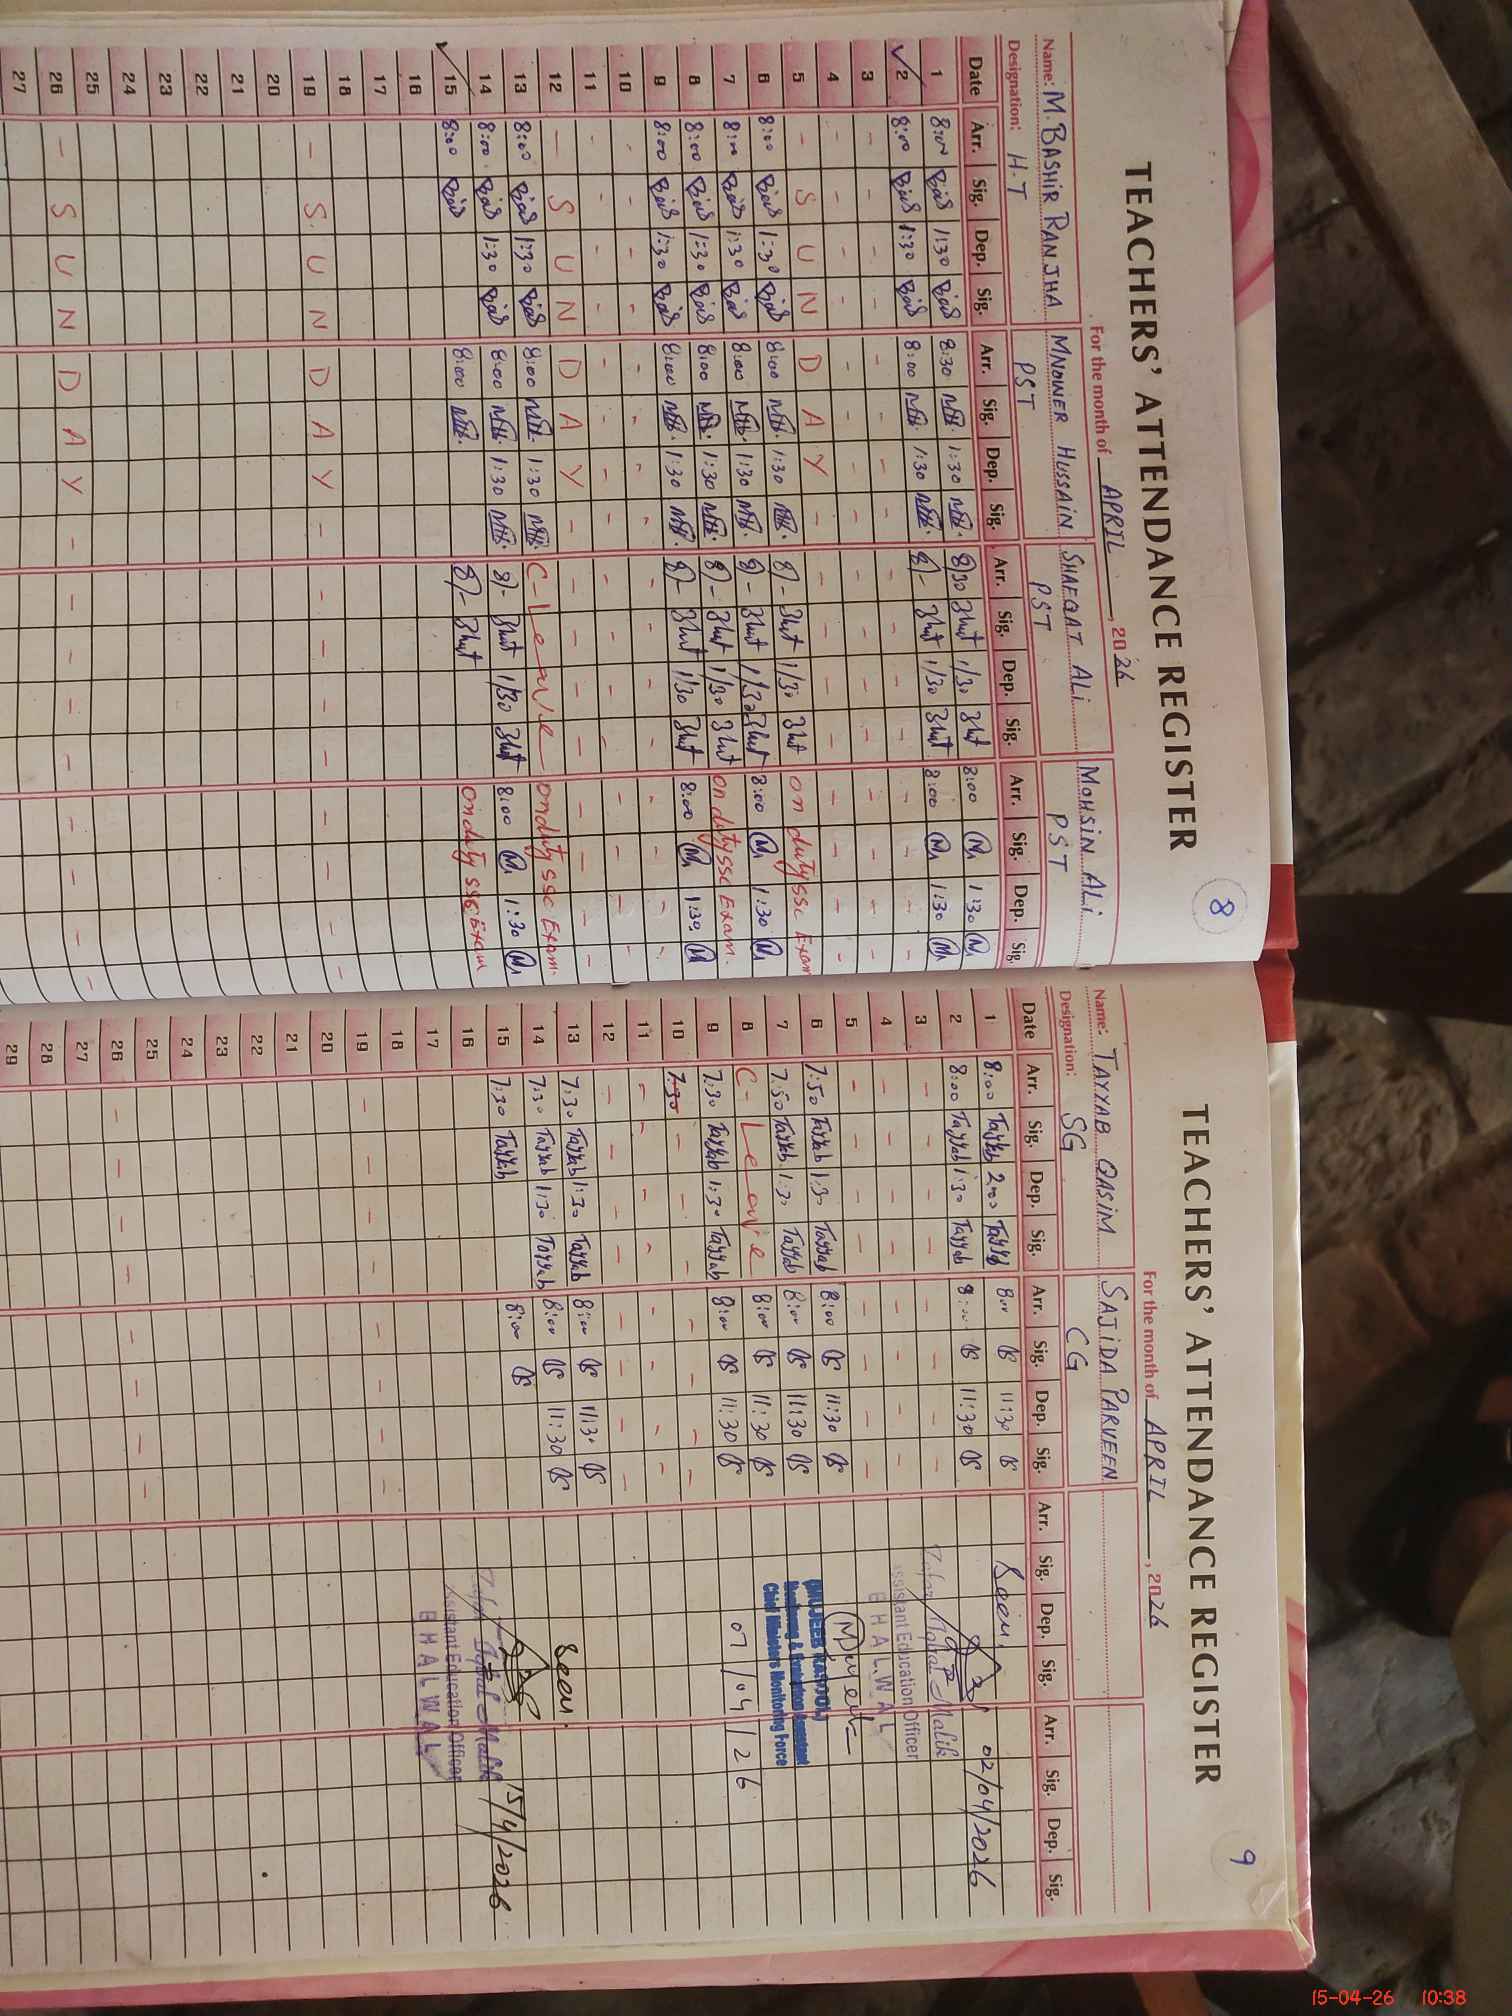 TEACHERS' ATTENDANCE REGISTER
8
For the month of APRIL, 2026
Name: M. BASHIR RANJHA MNOWER HUSSAIN SHAFQAT ALi MOHSIN ALi
Designation: H.T PST PST PST
Date Arr. Sig. Dep. Sig. Arr. Sig. Dep. Sig. Arr. Sig. Dep. Sig. Arr. Sig. Dep. Sig.
1 8:00 1:30 8:30 1:30 8/30 1/30 8:00 1:30
2 8:00 1:30 8:00 1:30 8/- 1/30 8:00 1:30
3 - - - - - - - - - - - -
4 - - - - - - - - - - - -
5 - S U N D A Y - - - - -
6 8:00 1:30 8:00 1:30 8/- 1/30 on duty SSC Exam
7 8:00 1:30 8:00 1:30 8/- 1/30 8:00 1:30
8 8:00 1:30 8:00 1:30 8/- 1/30 on duty SSC Exam.
9 8:00 1:30 8:00 1:30 8/- 1/30 8:00 1:30
10 - - - - - - - -
11 - - - - - - - -
12 - S U N D A Y - - - - -
13 8:00 1:30 8:00 1:30 C-Leave on duty SSC Exam.
14 8:00 1:30 8:00 1:30 8/- 1/30 8:00 1:30
15 8:00 8:00 8/- on duty SSC Exam
16
17
18
19 - S U N D A Y - - - - -
20
21
22
23
24
25
26 - S U N D A Y - - - - -
27
TEACHERS' ATTENDANCE REGISTER
9
For the month of APRIL, 2026
Name: TAYYAB QASIM SAJIDA PARVEEN
Designation: SG CG
Date Arr. Sig. Dep. Sig. Arr. Sig. Dep. Sig. Arr. Sig. Dep. Sig. Arr. Sig. Dep. Sig.
1 8:00 Tayyab 2:00 Tayyab 8:00 11:30 Seen.
2 8:00 Tayyab 1:30 Tayyab 8:00 11:30 02/04/2026
3 - - - - - -
Zafar Iqbal Malik
Assistant Education Officer
BHALWAL
4 - - - - - -
5 - - - - - -
6 7:50 Tayyab 1:30 Tayyab 8:00 11:30
(MUJEEB RASOOL)
Monitoring & Evaluation Assistant
Chief Ministers Monitoring Force
7 7:50 Tayyab 1:30 Tayyab 8:00 11:30
8 C-Leave 8:00 11:30 07/04/26
9 7:30 Tayyab 1:30 Tayyab 8:00 11:30
10 7:30 - - - - -
11 - - - - - -
12 - - - - - -
13 7:30 Tayyab 1:30 Tayyab 8:00 11:30 Seen.
14 7:30 Tayyab 1:30 Tayyab 8:00 11:30
15 7:30 Tayyab 8:00 15/4/2026
Zafar Iqbal Malik
Assistant Education Officer
BHALWAL
16
17
18
19 - - - - - - - -
20
21
22
23
24
25
26 - - - - - - - -
27
28
29
15-04-26 10:38